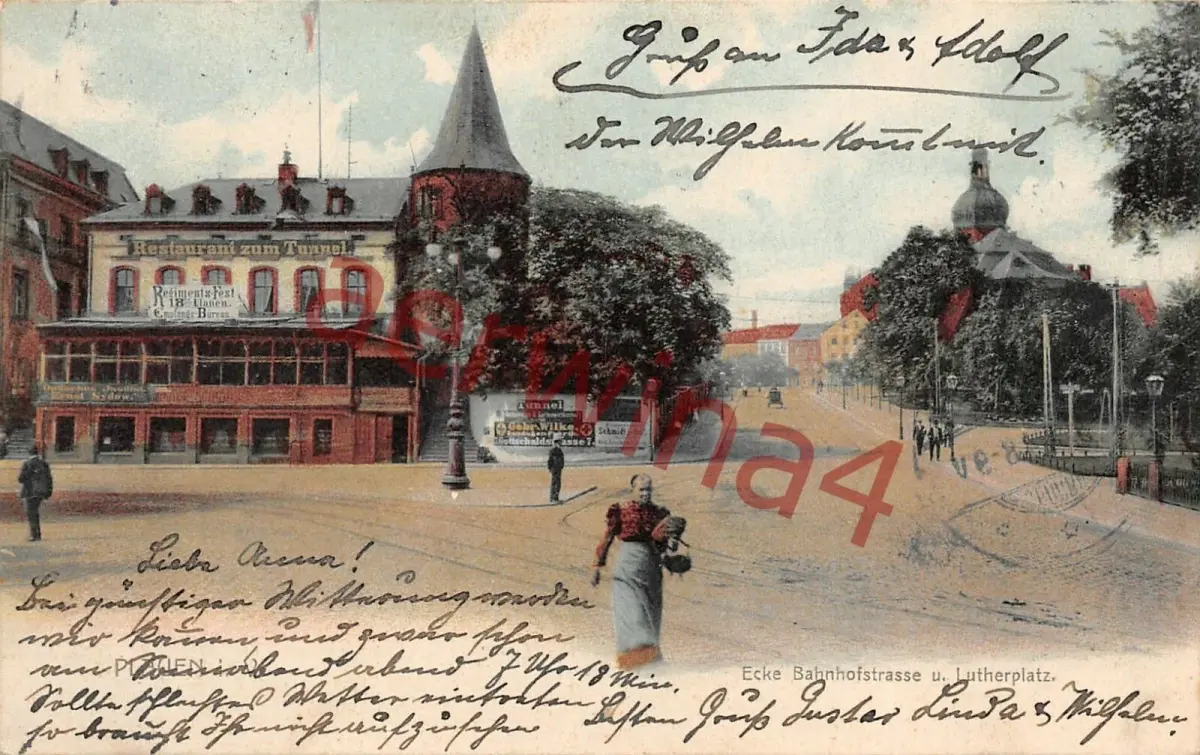 Gruß an Ida & Adolf
Der Wilhelm kommt mit.
Restaurant zum Tunnel
Regiments-Fest
18er Ulanen.
Empfangs-Bureau.
Tunnel
Gebr. Wilke
Gottschaldstrasse 7.
Schmidt
derwina4
Liebe Anna!
Bei günstiger Witterung werden
wir kommen und zwar schon
PLAUEN i. V.
am Sonnabend abend 7 Uhr 18 Min.
Ecke Bahnhofstrasse u. Lutherplatz.
Sollte schlechtes Wetter eintreten
so braucht Ihr nicht aufzusehen
Besten Gruß Gustav Linda & Wilhelm.